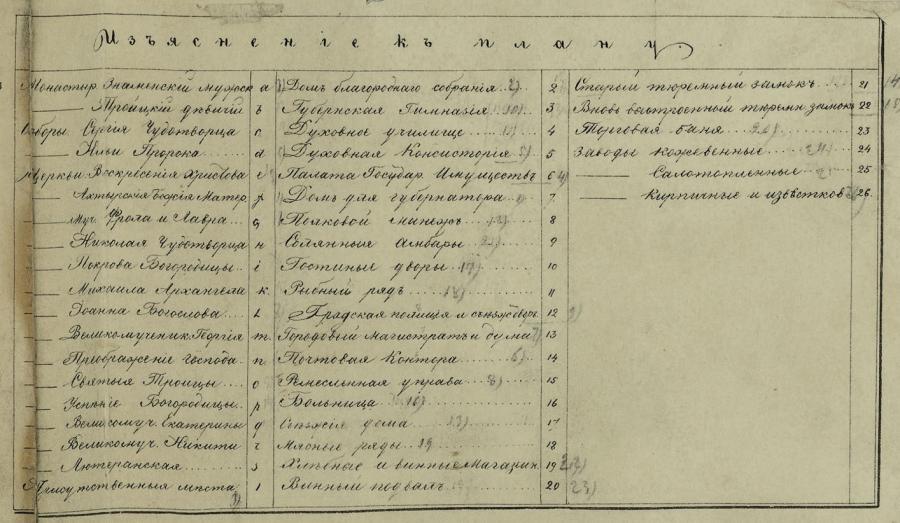 Изъясненіе къ плану.
Монастир Знаменскій мужск a
—— Троицкій дѣвичій b
Сергія Чудотворца c
—— Ильи Пророка d
Церкви Воскресенія Христова
—— Ахтырскія Божія Матер.
—— Муч. Фрола и Лавра g
—— Николая Чудотворца н
—— Покрова Богородицы i
—— Михаила Архангела к
—— Іоанна Богослова L
—— Великомученик Георгія m
—— Приображеніе господа n
—— Святыя Троицы o
—— Успѣніе Богородицы p
—— Великомуч. Екатерины q
—— Великомуч. Никити
—— Лютеранская s
Присутственныя мѣста 1
Домъ благороднаго собранія 2
Губернская Гимназія 3
Духовное училище 4
Духовная Консисторія 5
Палата Государ. Имуществъ 6
Домъ для губернатора 7
Полковой манежъ 8
Солянные Амбары 9
Гостиные дворы 17) 10
Рыбный рядъ 18) 11
Градская полиція 12
Городовый магистратъ и дума 13
Почтовая Контора 6) 14
Ремеслънная управа 8) 15
Больница 16) 16
дома 13) 17
Мясные ряды 19 18
Хлѣбные и винные Магазин. 19
Винный подвалъ 20 23)
Старый тюремный замокъ 21
Вновь выстроенный тюремн замокъ 22
Торговая баня 23
Заводы кожевенные 24
—— Салотопленные 25
—— Кирпичные и извѣстков 26